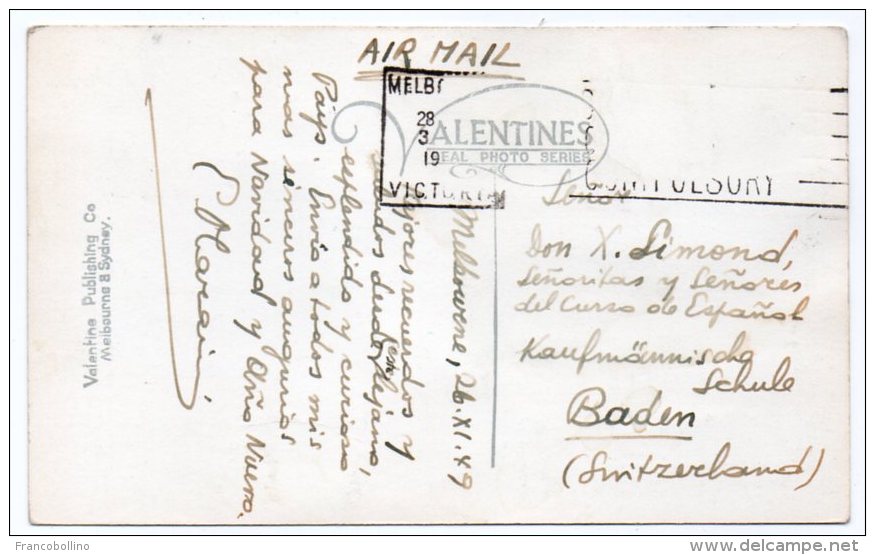 AIR MAIL
MELB
28
3
19
VICTORIA
VALENTINES
REAL PHOTO SERIES
COMPULSORY
Melbourne, 26.XI.49
Mejores recuerdos y
saludos desde ese lejano,
esplendido y curioso
Pays. Envia a todos mis
mas sinceros augurios
para Navidad y Año Nuevo.
Señor
Don X. Simond,
Señoritas y Señores
del Curso de Español
Kaufmännische
Schule
Baden
(Switzerland)
Valentine Publishing Co
Melbourne & Sydney.
Francobollino
www.delcampe.net